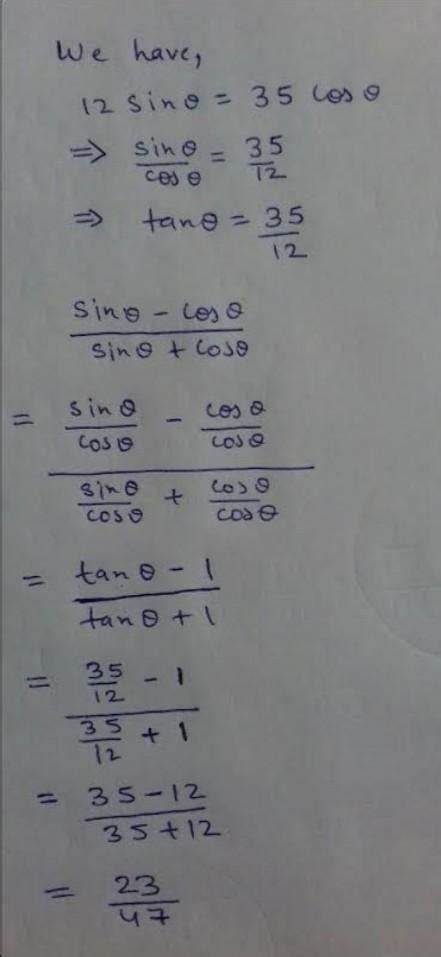 We have,
12 sinθ = 35 cosθ
⇒ sinθ/cosθ = 35/12
⇒ tanθ = 35/12
(sinθ - cosθ)/(sinθ + cosθ)
= (sinθ/cosθ - cosθ/cosθ)/(sinθ/cosθ + cosθ/cosθ)
= (tanθ - 1)/(tanθ + 1)
= (35/12 - 1)/(35/12 + 1)
= (35-12)/(35+12)
= 23/47